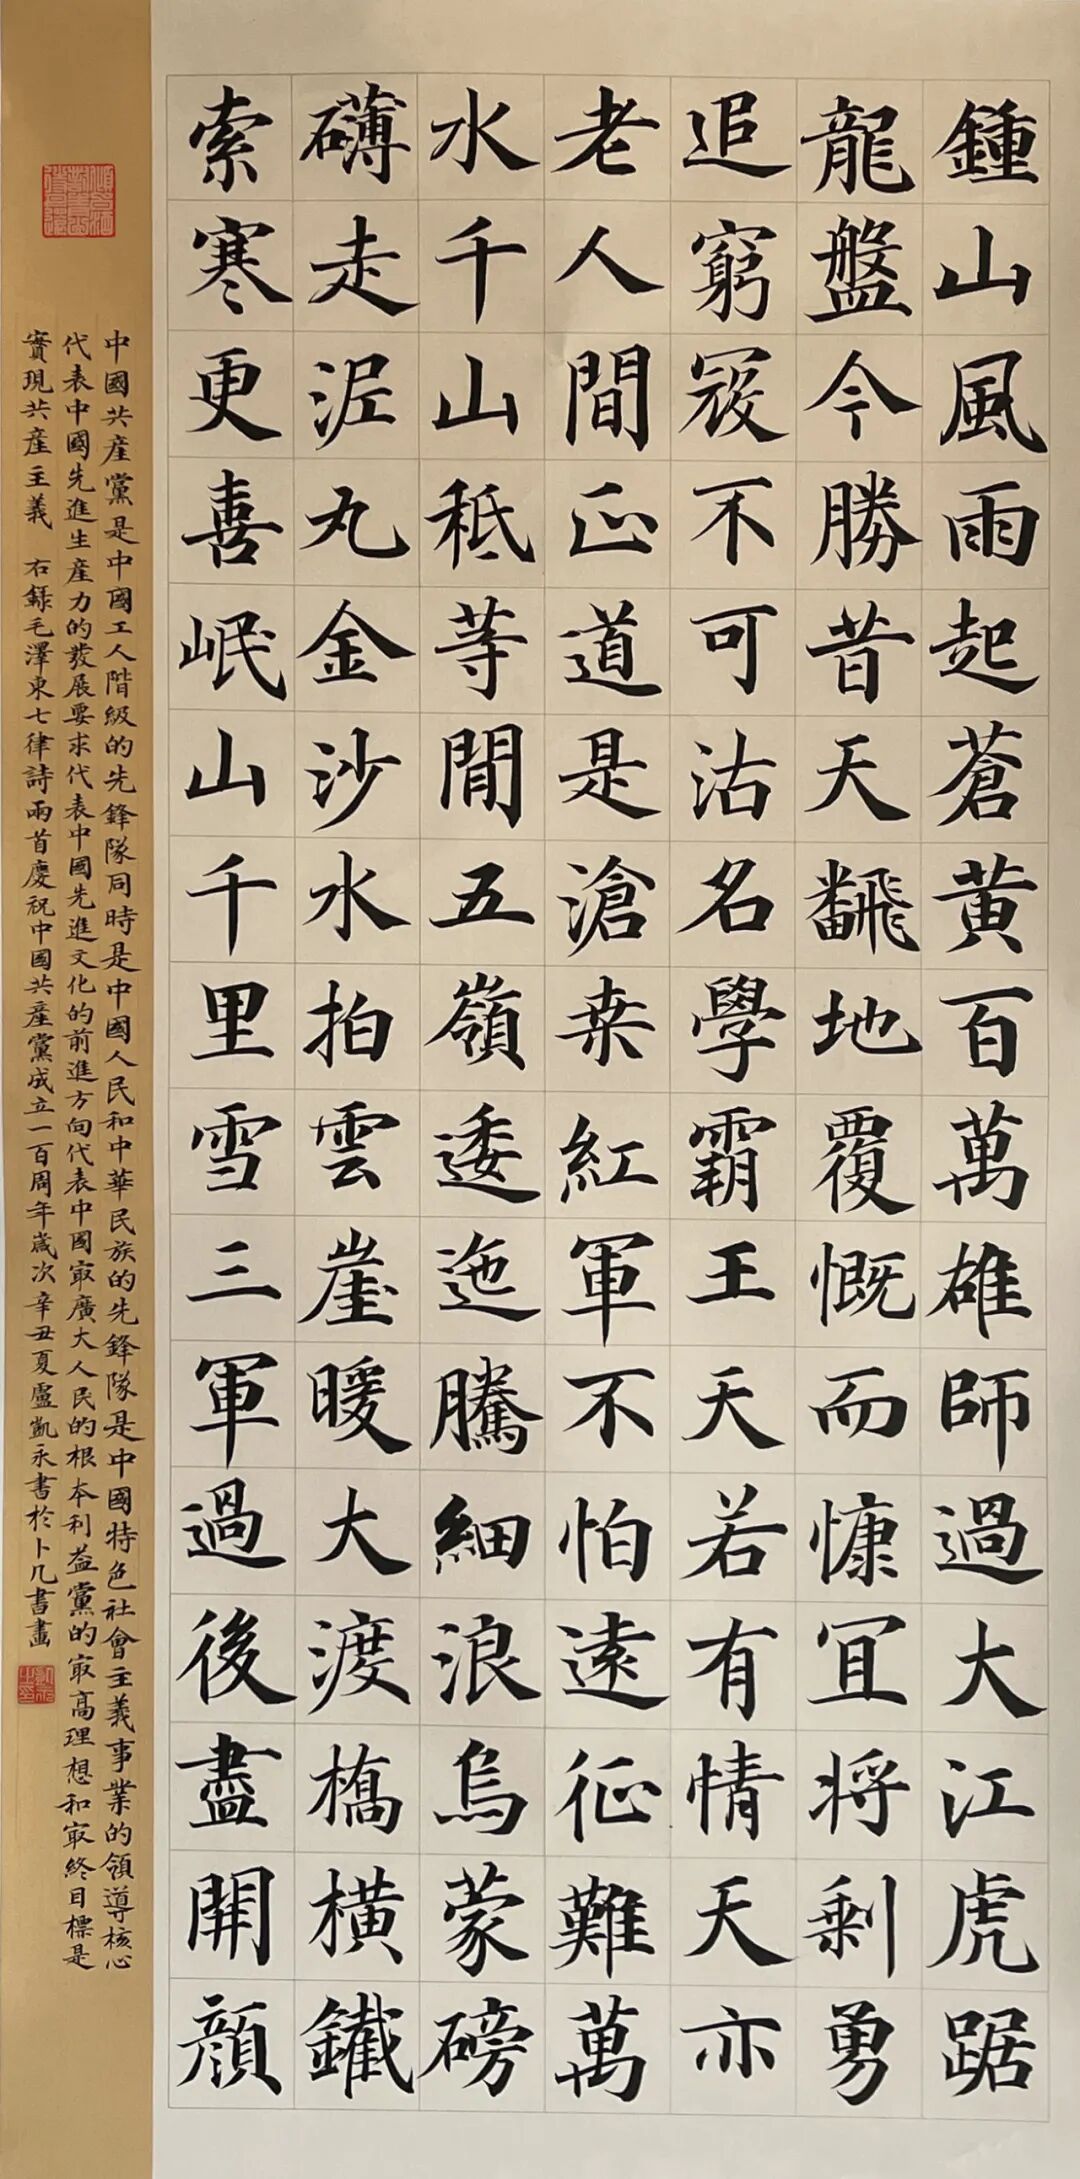 鍾山風雨起蒼黃百萬雄師過大江虎踞
龍盤今勝昔天飜地覆慨而慷宜將剩勇
追窮寇不可沽名學霸王天若有情天亦
老人間正道是滄桑紅軍不怕遠征難萬
水千山秪等閒五嶺逶迤騰細浪烏蒙磅
礴走泥丸金沙水拍雲崖暖大渡橋橫鐵
索寒更喜岷山千里雪三軍過後盡開顏
中國共產黨是中國工人階級的先鋒隊同時是中國人民和中華民族的先鋒隊是中國特色社會主義事業的領導核心
代表中國先進生產力的發展要求代表中國先進文化的前進方向代表中國最廣大人民的根本利益黨的最高理想和最終目標是
實現共產主義 右錄毛澤東七律詩兩首慶祝中國共產黨成立一百周年歲次辛丑夏盧凱永書於卜凡書畫